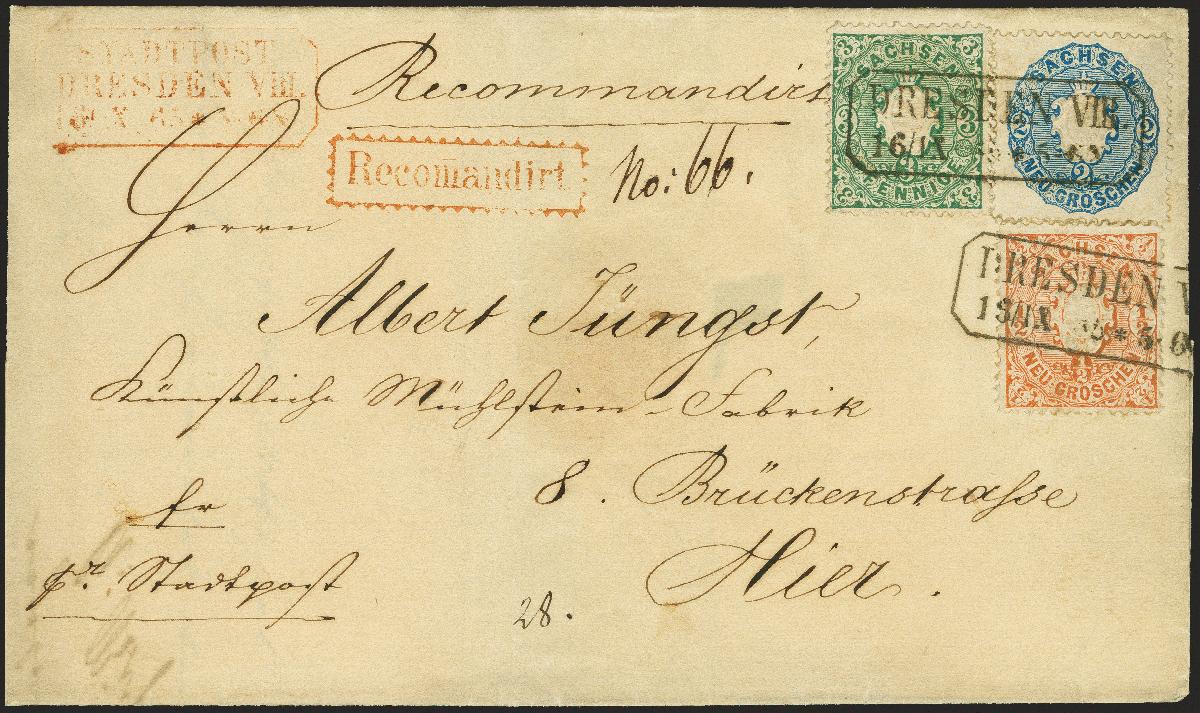 STADTPOST
DRESDEN VIII.
Recommandirt
Recomandirt
No: 66.
Herrn
Albert Jüngst,
Künstliche Mühlstein-Fabrik
8. Brückenstrasse
Hier.
fr
pr. Stadtpost
28.
3 3
SACHSEN
3 3
PFENNIGE
3 3
SACHSEN
2 2
2
NEU-GROSCHEN
DRESDEN VIII.
16/IX
SACHSEN
1/2 1/2
NEU-GROSCHEN
DRESDEN V
IX * 5-6